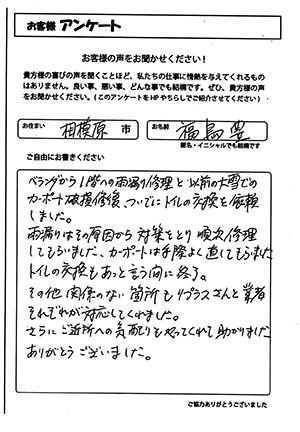 お客様 アンケート
お客様の声をお聞かせください！
貴方様の喜びの声を聞くことほど、私たちの仕事に情熱を与えてくれるもの
はありません。良い事、悪い事、どんな事でも結構です。ぜひ、貴方様の声
をお聞かせください。（このアンケートをHPやちらしでご紹介させてください）
お住まい 相模原 市 お名前 福島豊
匿名・イニシャルでも結構です
ご自由にお書きください
ベランダから1階への雨漏り修理と以前の大雪での
カーポート破損修復、ついでにトイレの交換を依頼
しました。
雨漏りはその原因から対策をとり順次修理
してもらいました、カーポートは手際よく直してもらいました
トイレの交換もあっと言う間に終了。
その他関係のない箇所もリプラスさんと業者
それぞれが対応してくれました。
さらにご近所への気配りもやってくれて助かりました
ありがとうございました。
ご協力ありがとうございました